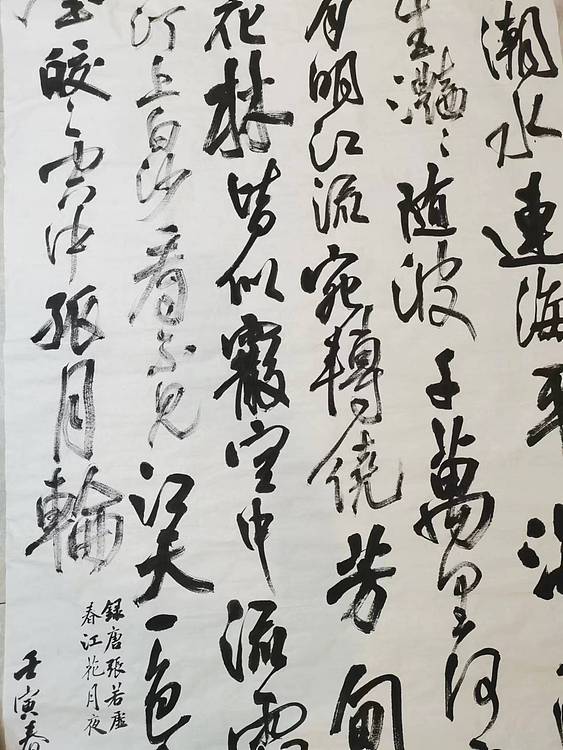 潮水連海平海
生灧〻随波千萬里何
月明江流宛轉繞芳甸
花林皆似霰空中流霜
汀上白沙看不見江天一色
塵皎〻空中孤月輪
録唐張若虛
春江花月夜
壬寅春